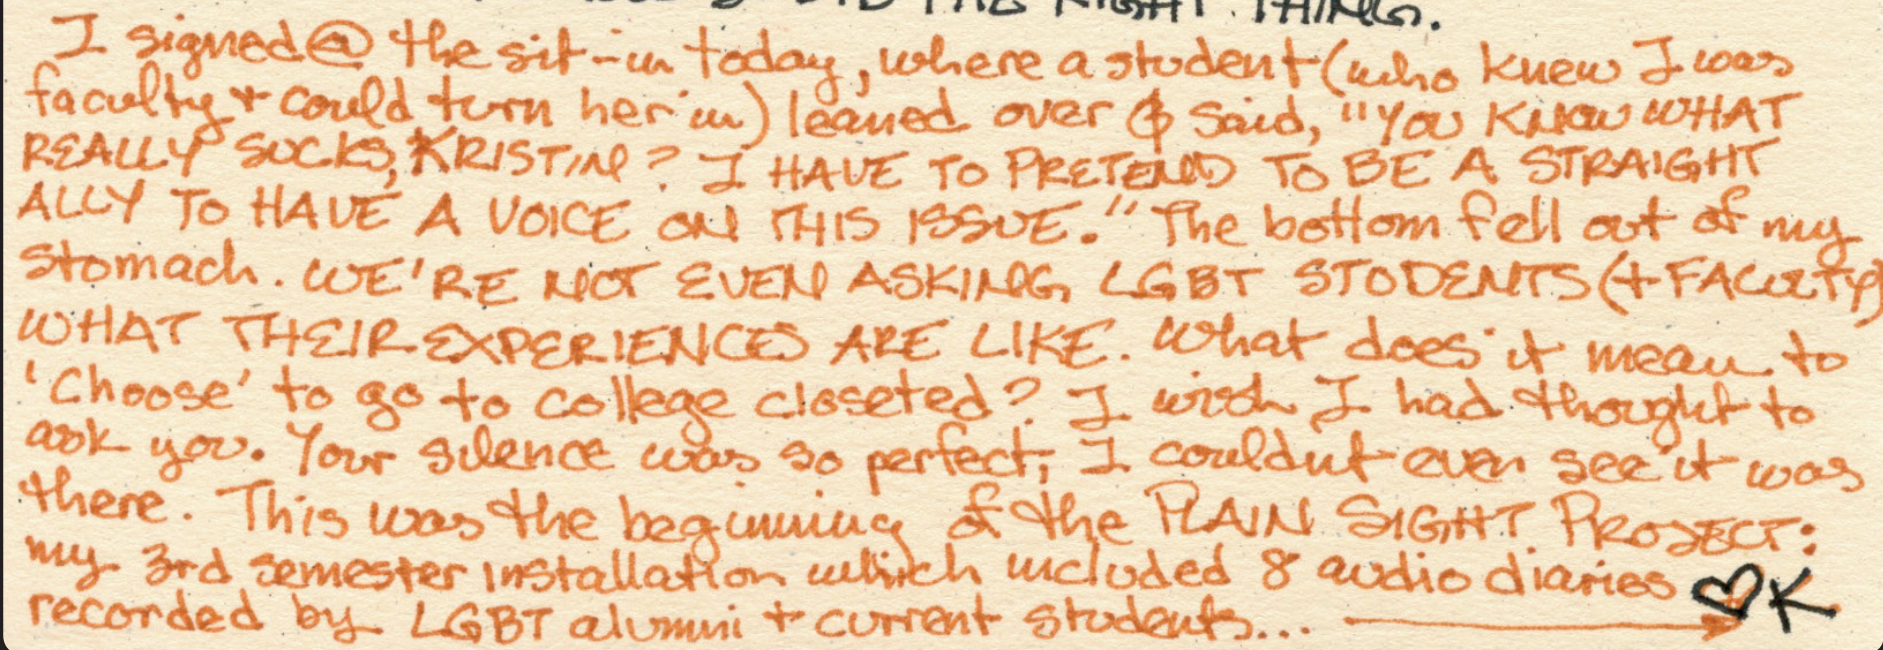 THE RIGHT THING.
I signed @ the sit-in today, where a student (who knew I was
faculty + could turn her in) leaned over & said, "YOU KNOW WHAT
REALLY SUCKS, KRISTIN? I HAVE TO PRETEND TO BE A STRAIGHT
ALLY TO HAVE A VOICE ON THIS ISSUE." The bottom fell out of my
stomach. WE'RE NOT EVEN ASKING LGBT STUDENTS (+ FACULTY)
WHAT THEIR EXPERIENCES ARE LIKE. What does it mean to
'Choose' to go to college closeted? I wish I had thought to
ask you. Your silence was so perfect, I couldn't even see it was
there. This was the beginning of the PLAIN SIGHT PROJECT:
my 3rd semester installation which included 8 audio diaries
recorded by LGBT alumni + current students... → ♡K